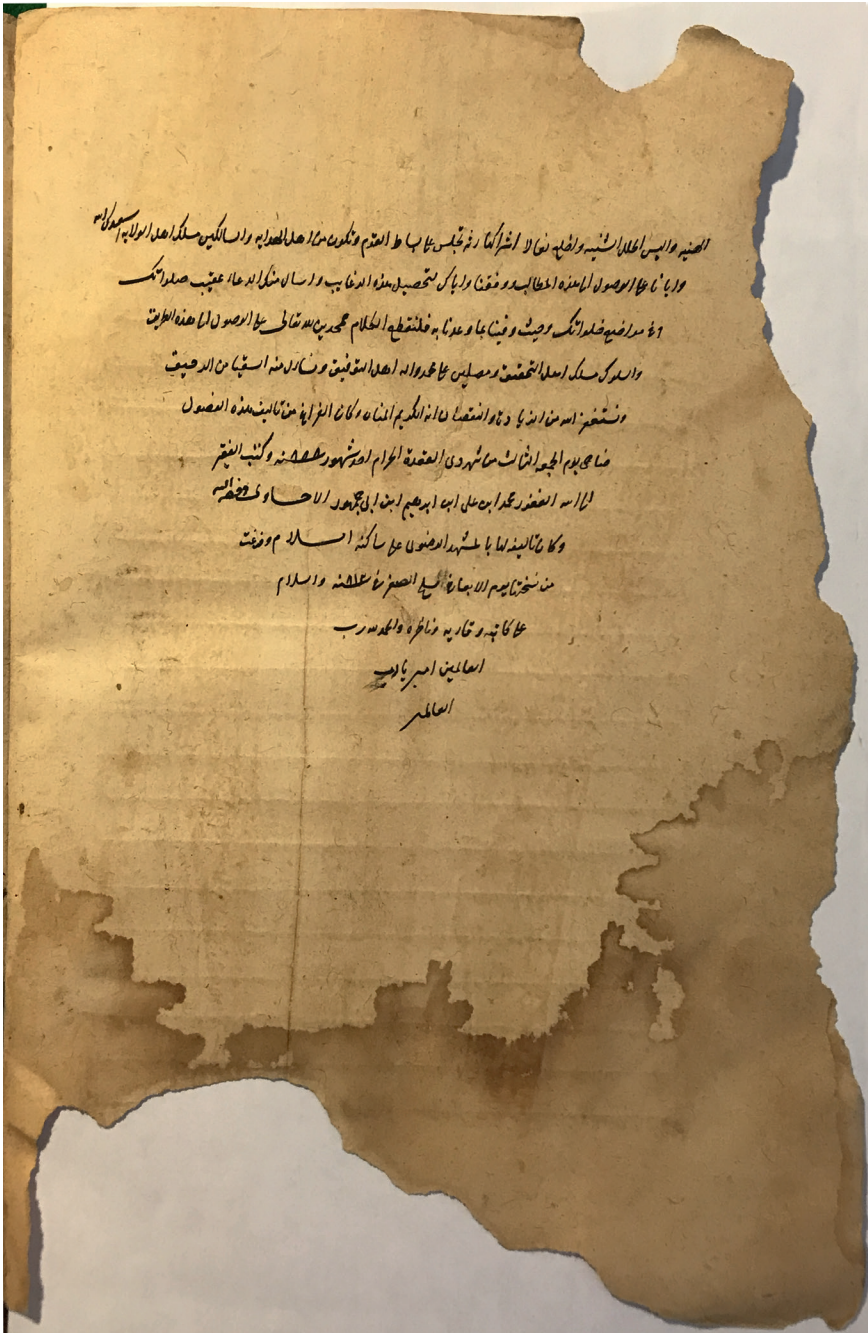 الهنيه والبس الحلل السنيه واخلع نعال الاشراك تجلس على بساط القدم وتكون من اهل الهدايه والسالكين مسلك اهل الولايه اسعدك الله
وايانا على الوصول الى هذه المطالب ووفقنا واياك لتحصيل هذه الرغايب واسال منك الدعاء عقيب صلواتك
وفي مواضع خلواتك وحيث وفينا بما وعدنا به فلنقطع الكلام حامدين لله تعالى على الوصول الى هذه الطريق
والسلوك مسلك اهل التحقيق ومصلين على محمد واله اهل التوفيق ونسأل منه السقيا من الرحيق
ونستغفر الله من الزيادة والنقصان انه الكريم المنان وكان الفراغ من تاليف هذه الفصول
ضاحى يوم الجمعه الثالث من شهر ذى القعدة الحرام احد شهور سنه وكتب الفقير
الى الله الغفور محمد ابن على ابن ابرهيم ابن ابى جمهور الاحساوى
وكان تاليفه لها بالمشهد الرضوى على ساكنه السلام وفرغت
من نسختها يوم الاربعا في الصفر سنه والسلام
على كاتبه وقاريه وناظره والحمد لله رب
العالمين امين يا رب
العالمين